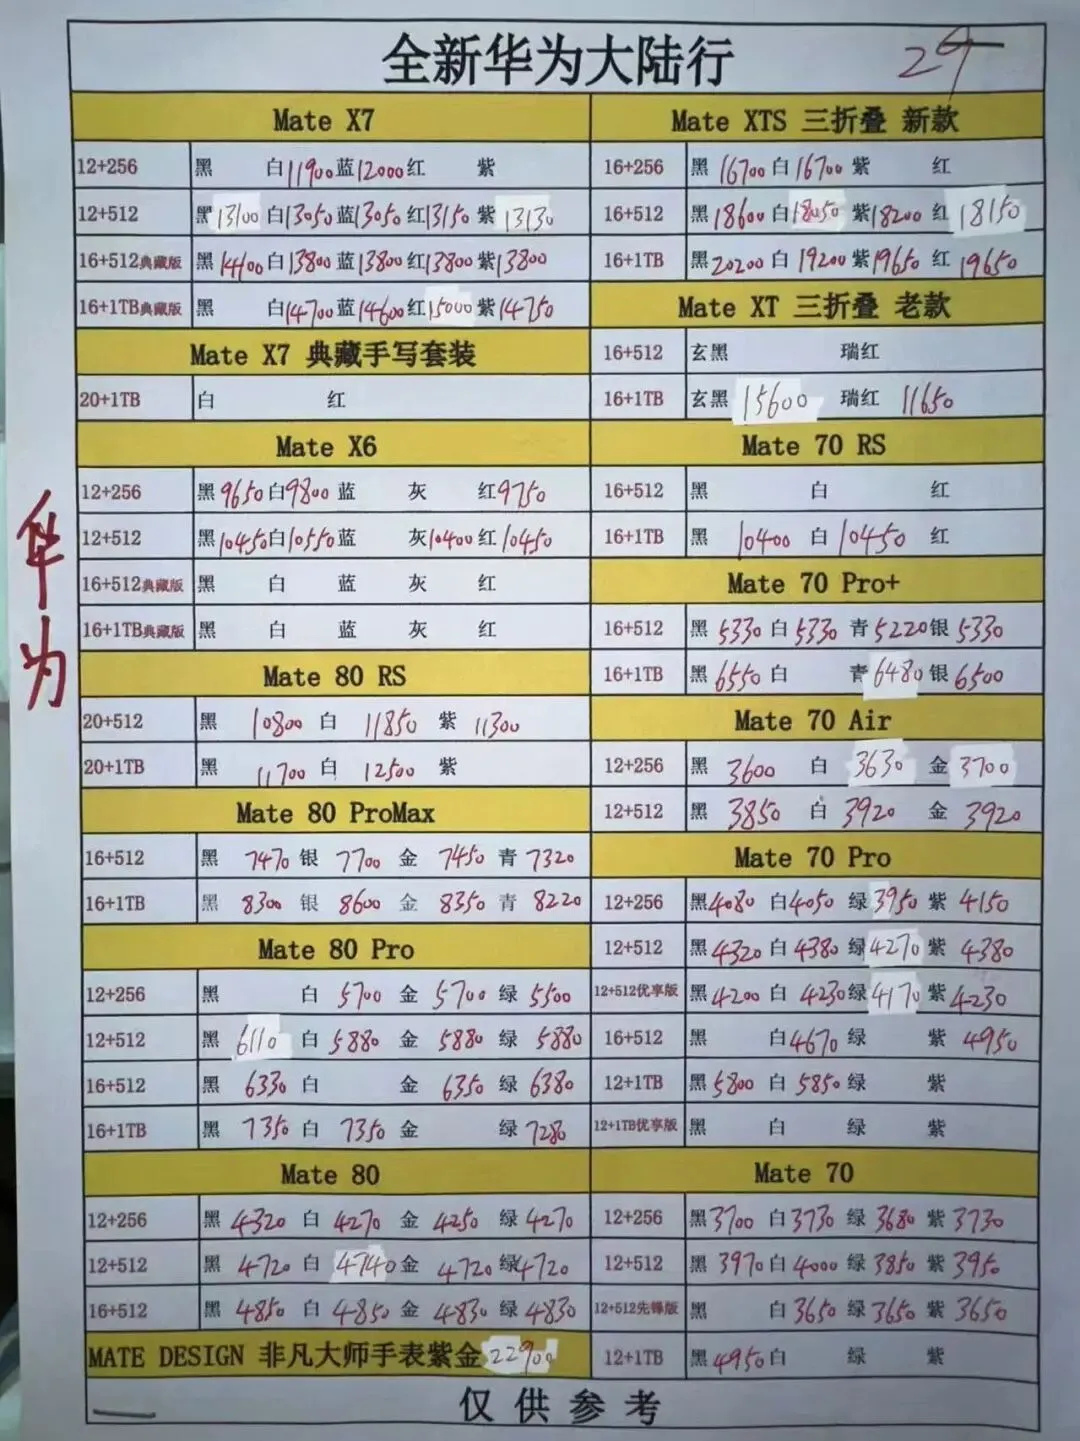 全新华为大陆行
29
华为
Mate X7
12+256 黑 白11900 蓝12000 红 紫
12+512 黑13100 白13050 蓝13050 红13150 紫13130
16+512典藏版 黑14100 白13800 蓝13800 红13800 紫13800
16+1TB典藏版 黑 白14700 蓝14600 红15000 紫14750
Mate X7 典藏手写套装
20+1TB 白 红
Mate X6
12+256 黑9650 白9800 蓝 灰 红9750
12+512 黑10450 白10550 蓝 灰10400 红10450
16+512典藏版 黑 白 蓝 灰 红
16+1TB典藏版 黑 白 蓝 灰 红
Mate 80 RS
20+512 黑 10800 白 11850 紫 11300
20+1TB 黑 11700 白 12500 紫
Mate 80 ProMax
16+512 黑 7470 银 7700 金 7450 青 7320
16+1TB 黑 8300 银 8600 金 8350 青 8220
Mate 80 Pro
12+256 黑 白 5700 金 5700 绿 5500
12+512 黑 6110 白 5880 金 5880 绿 5880
16+512 黑 6330 白 金 6350 绿 6380
16+1TB 黑 7350 白 7350 金 绿 7280
Mate 80
12+256 黑 4320 白 4270 金 4250 绿 4270
12+512 黑 4720 白 4740 金 4720 绿 4720
16+512 黑 4850 白 4850 金 4830 绿 4830
MATE DESIGN 非凡大师手表紫金 22900
Mate XTS 三折叠 新款
16+256 黑 16700 白 16700 紫 红
16+512 黑 18600 白 18050 紫 18200 红 18150
16+1TB 黑 20200 白 19200 紫 19650 红 19650
Mate XT 三折叠 老款
16+512 玄黑 瑞红
16+1TB 玄黑 15600 瑞红 11650
Mate 70 RS
16+512 黑 白 红
16+1TB 黑 10400 白 10450 红
Mate 70 Pro+
16+512 黑 5330 白 5330 青 5220 银 5330
16+1TB 黑 6550 白 青 6480 银 6500
Mate 70 Air
12+256 黑 3600 白 3630 金 3700
12+512 黑 3850 白 3920 金 3920
Mate 70 Pro
12+256 黑 4080 白 4050 绿 3950 紫 4150
12+512 黑 4320 白 4380 绿 4270 紫 4380
12+512优享版 黑 4200 白 4230 绿 4170 紫 4230
16+512 黑 白 4670 绿 紫 4950
12+1TB 黑 5800 白 5850 绿 紫
12+1TB优享版 黑 白 绿 紫
Mate 70
12+256 黑 3700 白 3730 绿 3680 紫 3730
12+512 黑 3970 白 4000 绿 3850 紫 3950
12+512先锋版 黑 白 3650 绿 3650 紫 3650
12+1TB 黑 4950 白 绿 紫
仅供参考